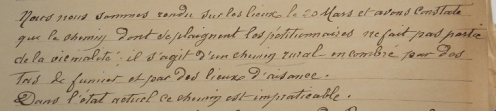 Nous nous sommes rendu sur les lieux le 20 Mars et avons constaté
que le chemin dont se plaignent les pétitionnaires ne fait pas partie
de la vicinalité ; il s'agit d'un chemin rural encombré par des
tas de fumier et par des lieux d'aisance.
Dans l'état actuel ce chemin est impraticable.